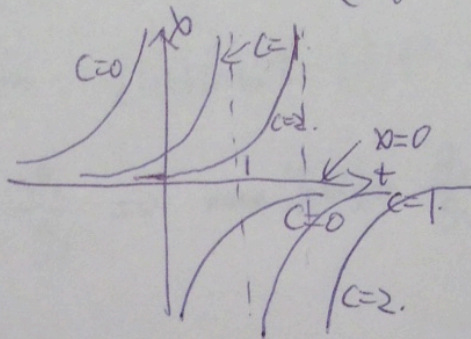 x
C=0
C=1
C=2.
x=0
t
C=0
C=1.
C=2.